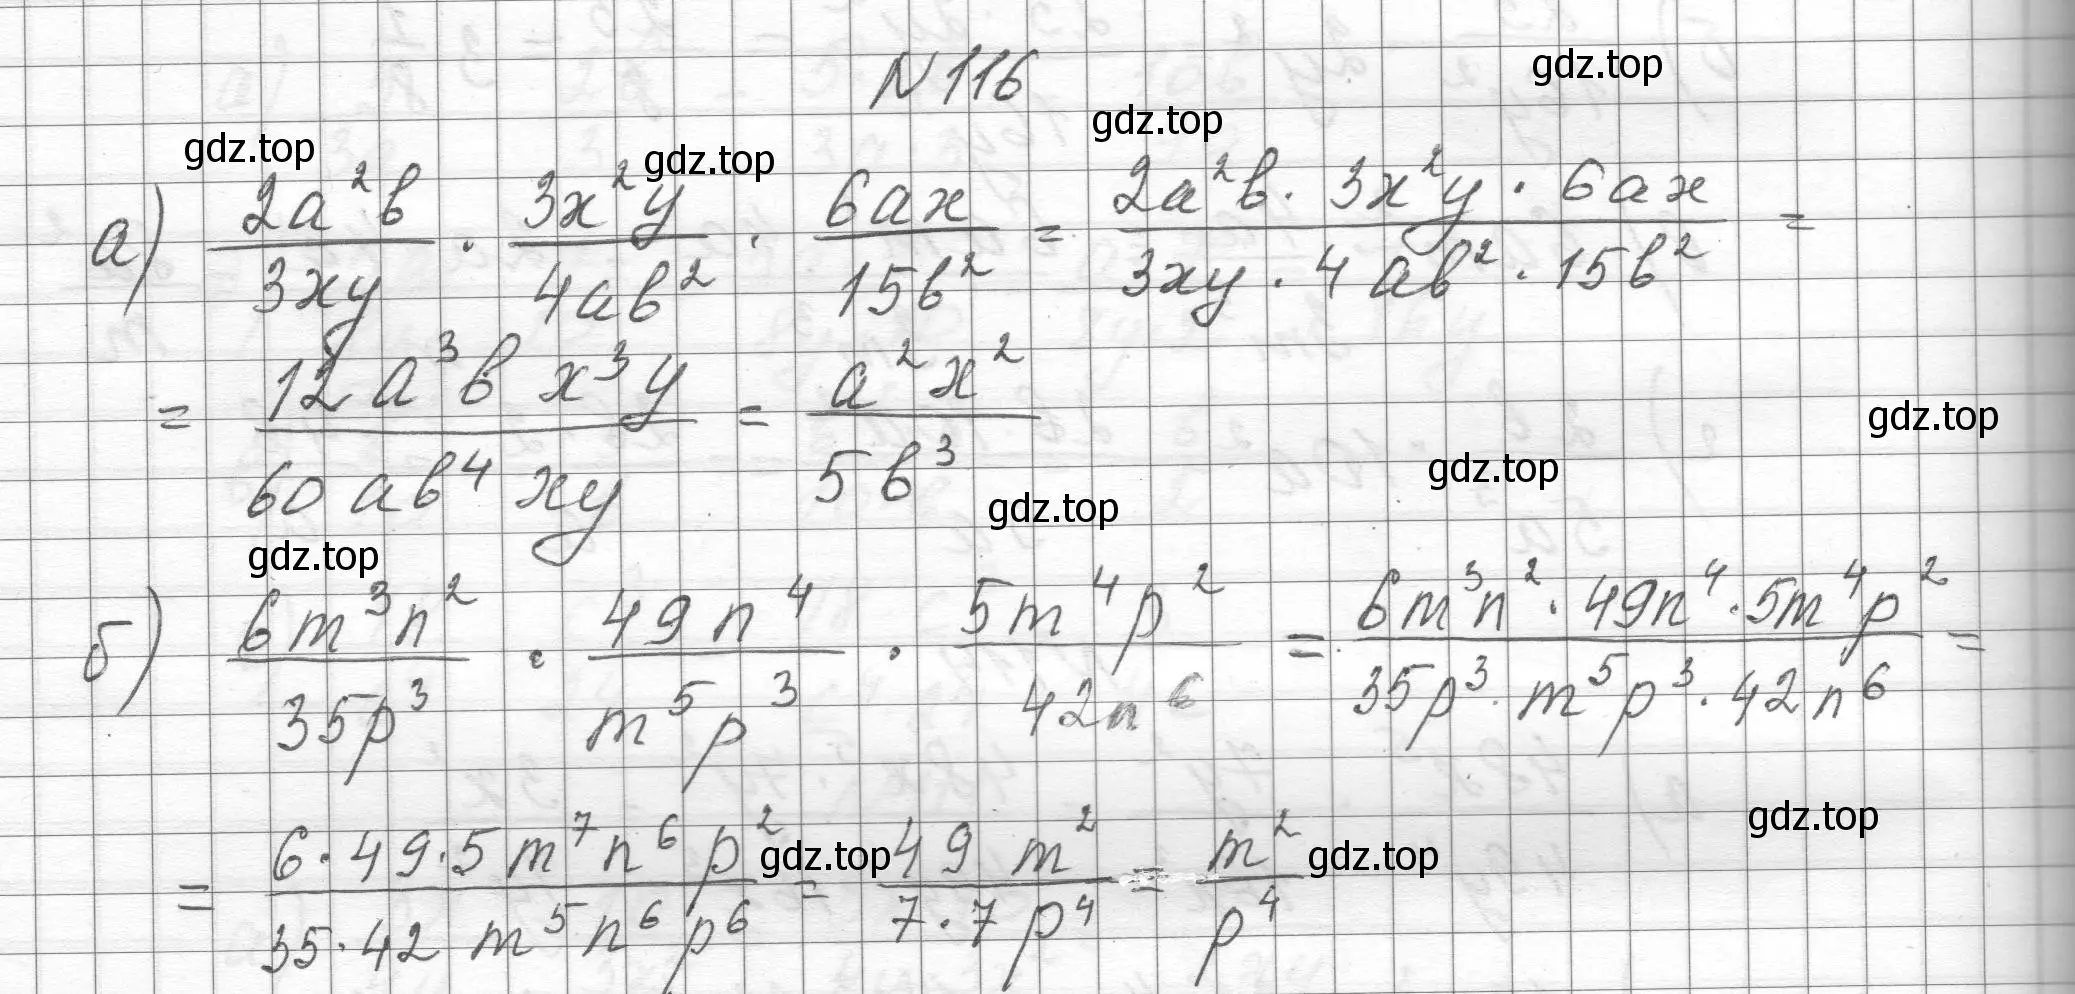 N 116
gdz.top gdz.top gdz.top gdz.top
а) \frac{2a^2b}{3xy} · \frac{3x^2y}{4ab^2} · \frac{6ax}{15b^2} = \frac{2a^2b · 3x^2y · 6ax}{3xy · 4ab^2 · 15b^2} =
= \frac{12a^3bx^3y}{60ab^4xy} = \frac{a^2x^2}{5b^3}
gdz.top gdz.top gdz.top gdz.top
б) \frac{6m^3n^2}{35p^3} · \frac{49n^4}{m^5p^3} · \frac{5m^4p^2}{42n^6} = \frac{6m^3n^2 · 49n^4 · 5m^4p^2}{35p^3 · m^5p^3 · 42n^6} =
= \frac{6·49·5m^7n^6p^2}{35·42m^5n^6p^6} = \frac{49m^2}{7·7p^4} = \frac{m^2}{p^4}
gdz.top gdz.top gdz.top